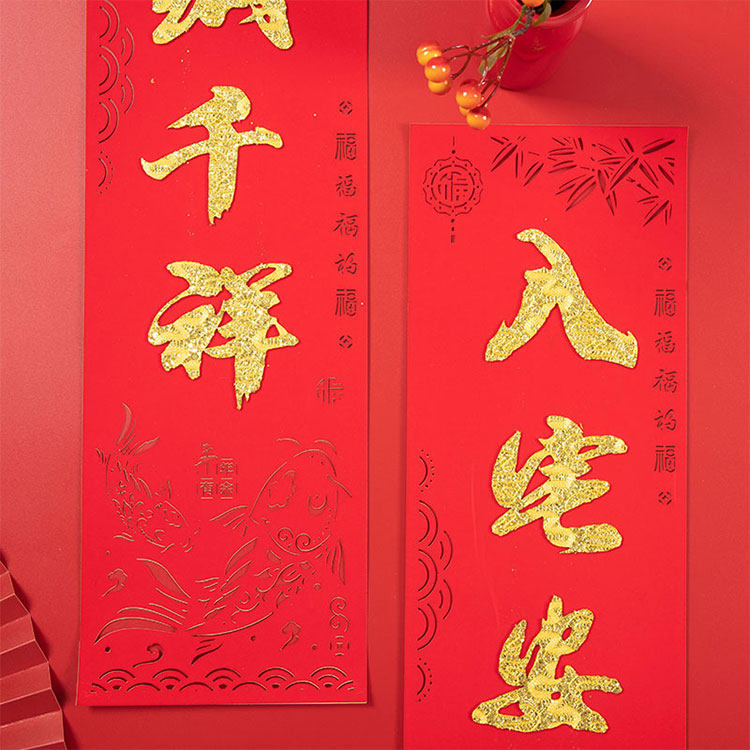 福
入宅安
福福福福福
千祥
福福福福福
福
年年有余